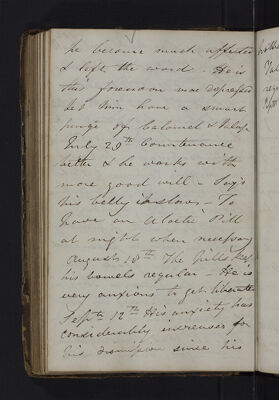 he became much affected
& left the ward - He is
this forenoon more depressed
Let him have a smart
purge of Calomel & Jalap
July 29th Countenance
better & he works with
more good will - Says
his belly is slow - To
have an Aloetic Pill
at night when necessary
August 18th The pills keep
his bowels regular - He is
very anxious to get liberated
Septr 12th His anxiety has
considerably increased for
his dismission since his